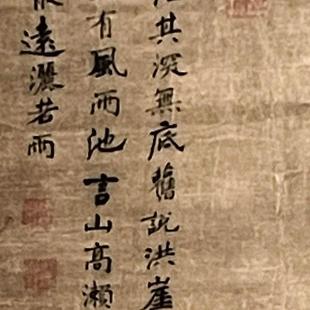 其深無底舊說洪崖
有風雨池言山高瀨
遠灑若雨